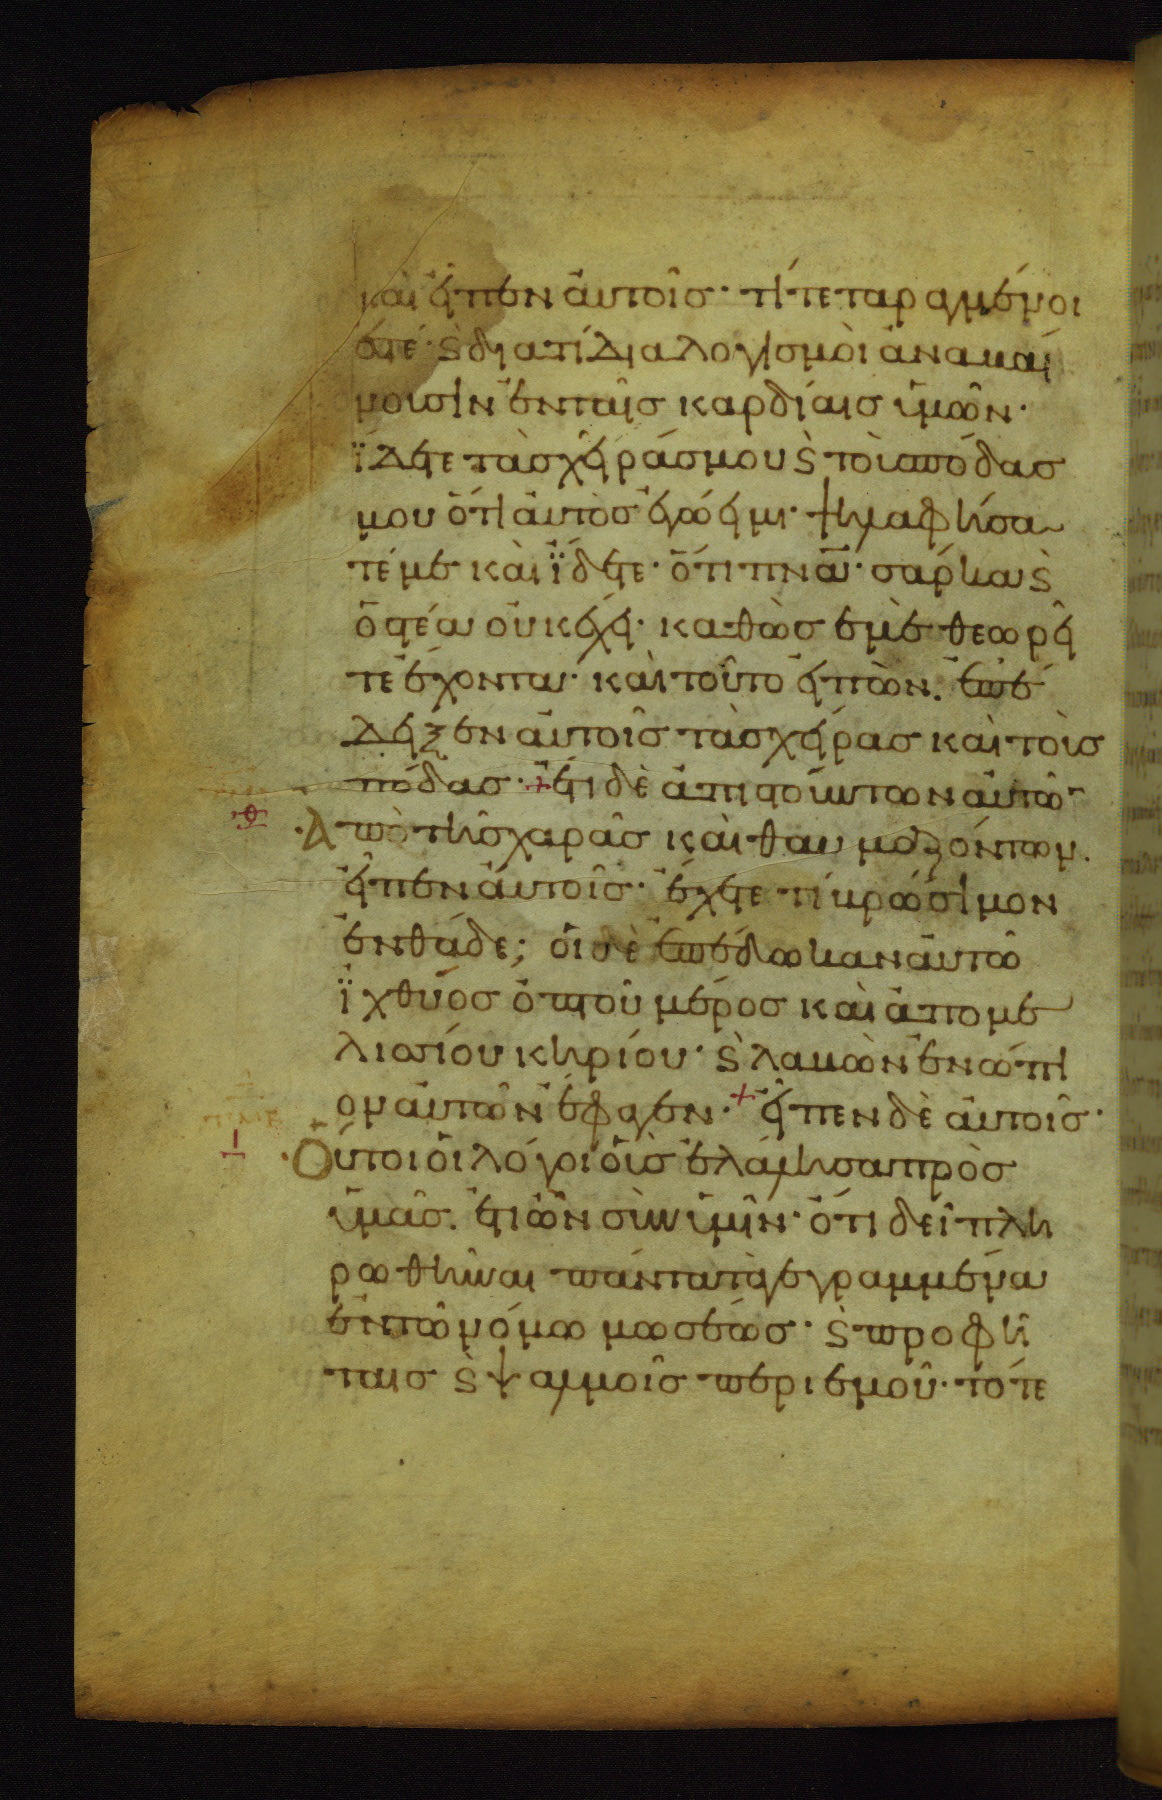 καὶ εἶπεν αὐτοῖς· τί τεταραγμένοι
ἐστέ· ϗ διατί διαλογισμοὶ ἀναβαί
νουσιν ἐν ταῖς καρδίαις ὑμῶν·
ἴδετε τὰς χεῖράς μου ϗ τοὺς πόδας
μου ὅτι αὐτὸς ἐγώ εἰμι· ψηλαφήσα
τέ με καὶ ἴδετε· ὅτι πνα· σάρκα ϗ
ὀστέα οὐκ ἔχει· καθὼς ἐμὲ θεωρεῖ
τε ἔχοντα· καὶ τοῦτο εἰπὼν. ἐπέ
δειξεν αὐτοῖς τὰς χεῖρας καὶ τοὺς
πόδας· + ἔτι δὲ ἀπιστούντων αὐτῶ
θ ·Ἀπὸ τῆς χαρᾶς καὶ θαυμαζόντων.
εἶπεν αὐτοῖς· ἔχετε τί βρώσιμον
ἐνθάδε; οἱ δὲ ἐπέδωκαν αὐτῶ
ἰχθύος ὀπτοῦ μέρος καὶ ἀπο με
λισσίου κηρίου· ϗ λαβὼν ἐνώπι
ον αὐτῶν ἔφαγεν· + εἶπεν δὲ αὐτοῖς·
ι ·Οὗτοι οἱ λόγοι οὓς ἐλάλησα πρὸς
ὑμᾶς. ἔτι ὢν σὺν ὑμῖν· ὅτι δεῖ πλη
ρωθῆναι πάντα τὰ γεγραμμένα
ἐν τῶ νόμω μωσέως· ϗ προφή
ταις ϗ ψαλμοῖς περι εμοῦ· τότε